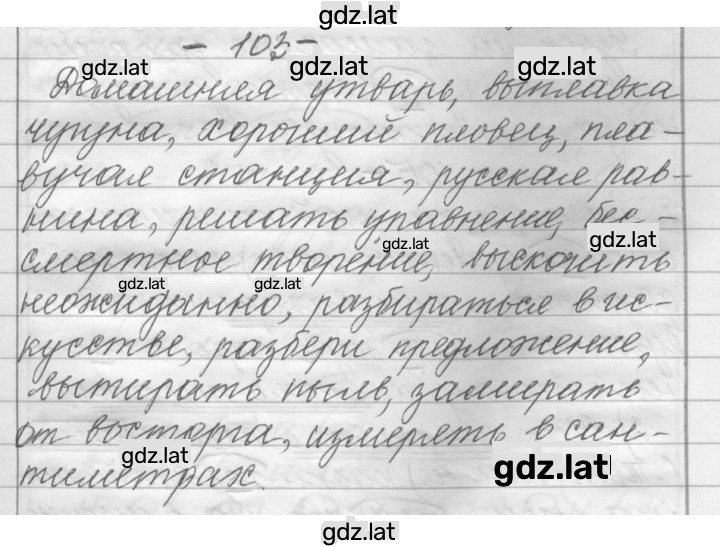 gdz.lat
- 103 -
gdz.lat gdz.lat gdz.lat
Домашняя утварь, выплавка
чугуна, хороший пловец, пла-
вучая станция, русская рав-
нина, решать уравнение, бес-
gdz.lat gdz.lat
смертное творение, выскочить
gdz.lat gdz.lat
неожиданно, разбираться в ис-
кусстве, разбери предложение,
вытирать пыль, замирать
от восторга, измерять в сан-
gdz.lat gdz.lat
тиметрах.
gdz.lat